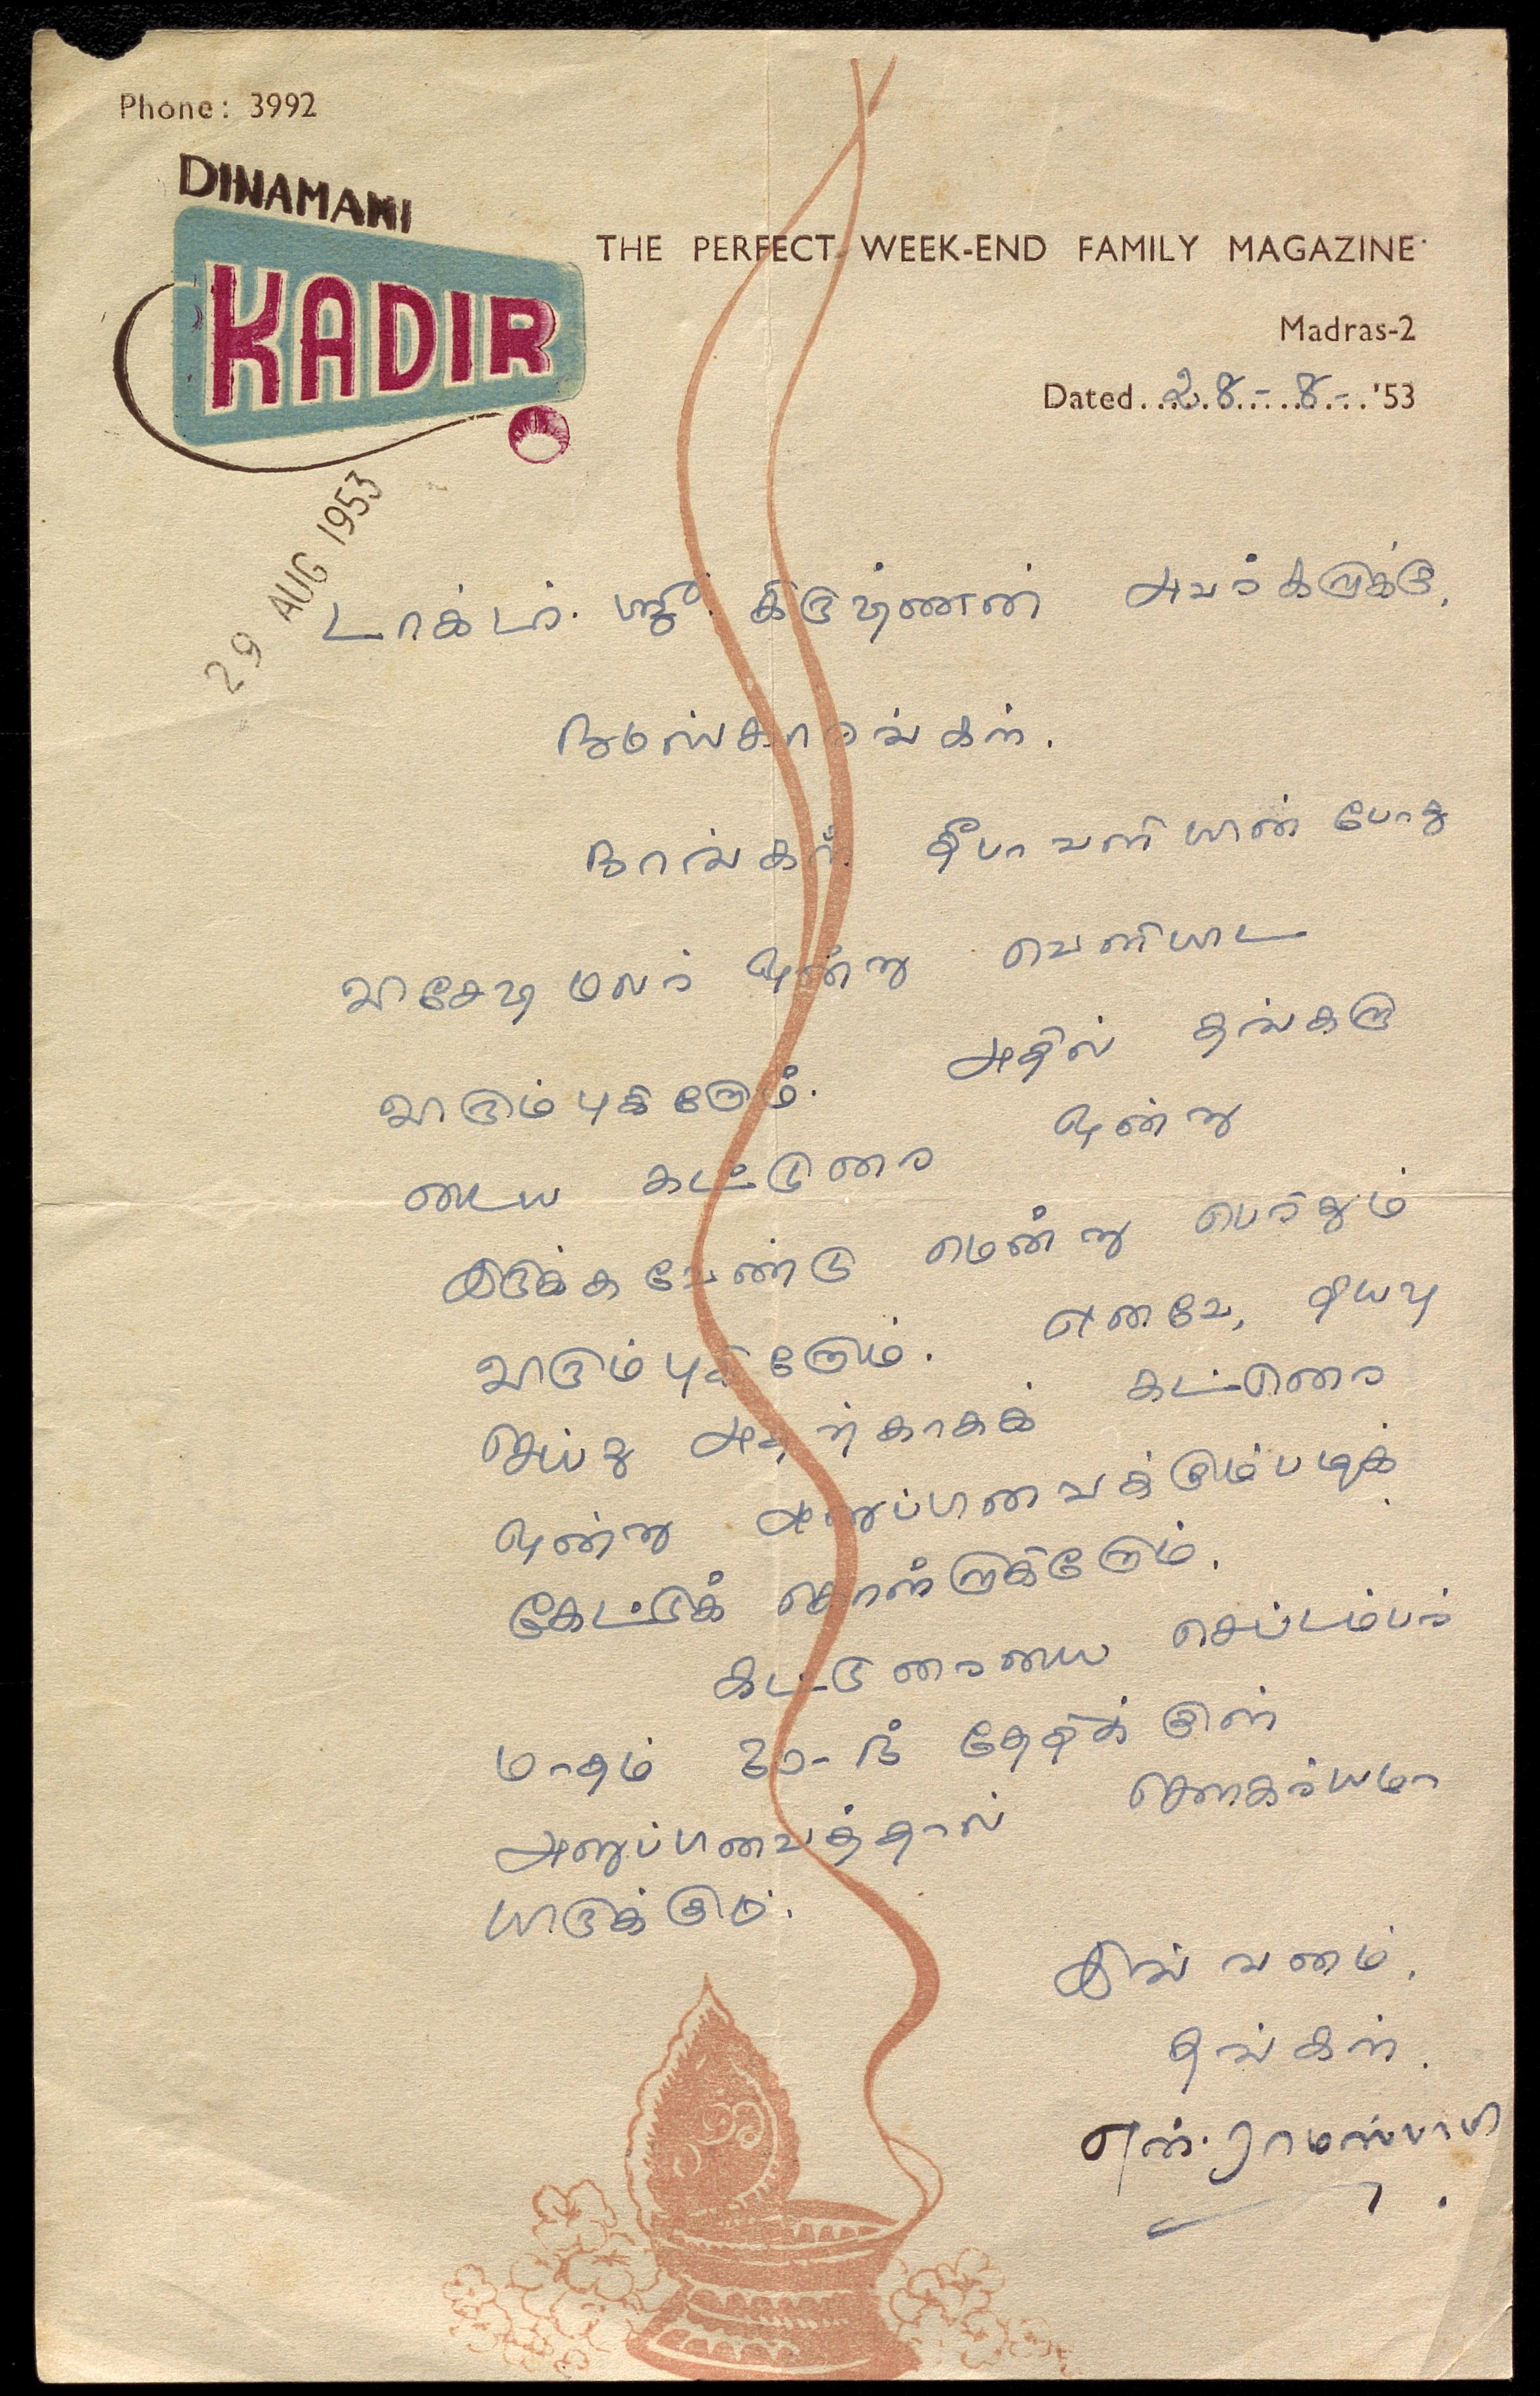 Phone: 3992
DINAMANI
KADIR
THE PERFECT WEEK-END FAMILY MAGAZINE
Madras-2
Dated 28-8-'53
29 AUG 1953
டாக்டர். ஸ்ரீ. கிருஷ்ணன் அவர்களுக்கு,
நமஸ்காரங்கள்.
நாங்கள் தீபாவளியின் போது
விசேஷ மலர் ஒன்று வெளியிட
விரும்புகிறோம். அதில் தங்களு
டைய கட்டுரை ஒன்று
இருக்க வேண்டு மென்று பெரிதும்
விரும்புகிறோம். எனவே, தயவு
செய்து அதற்காகக் கட்டுரை
ஒன்று அனுப்பிவைக்கும்படிக்
கேட்டுக் கொள்ளுகிறோம்.
கட்டுரையை செப்டம்பர்
மாதம் 20-ந் தேதிக்குள்
அனுப்பிவைத்தால் சௌகர்யமா
யிருக்கும்.
இங்ஙனம்,
தங்கள்.
என். ராமஸ்வாமி